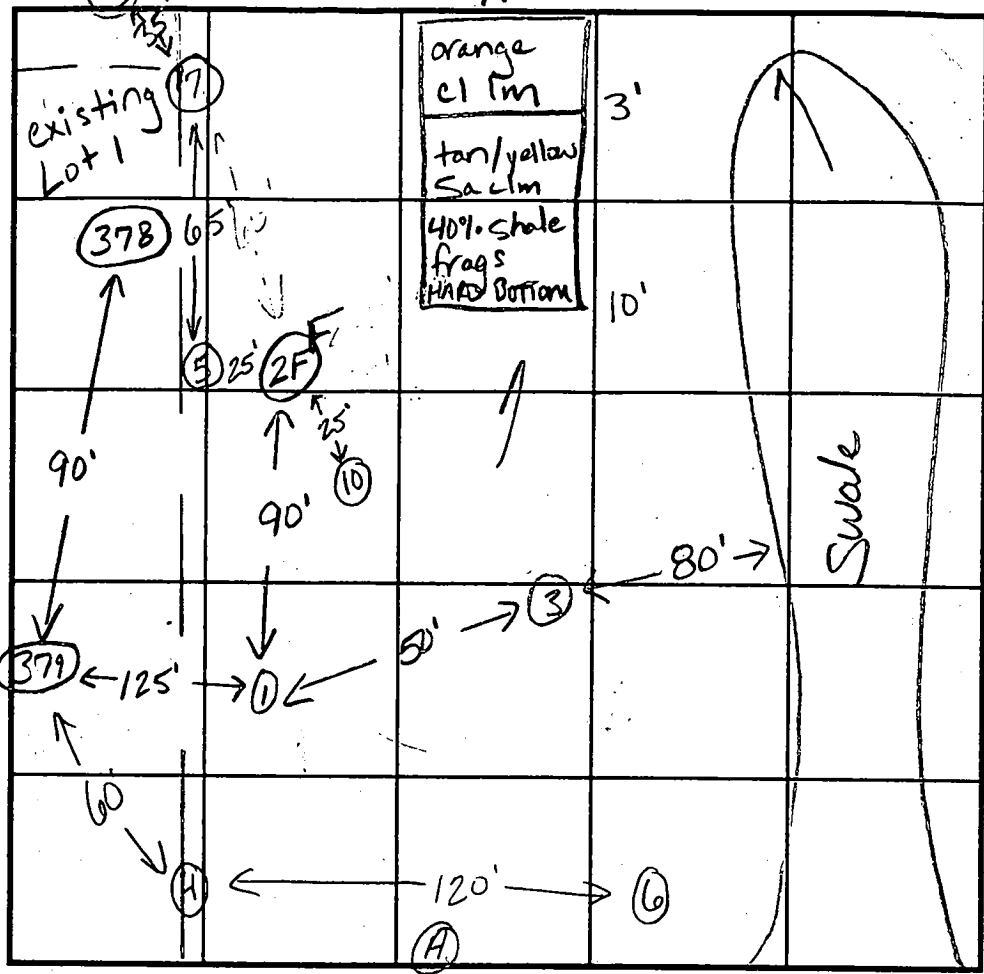 35
existing
Lot 1
7
orange
cl lm
3'
tan/yellow
Sa clm
40% shale
frags
HARD BOTTOM
10'
378
65
60'
5
25'
2F
F
25'
10
90'
90'
Swale
80'
3
50'
379
125'
1
60'
4
120'
6
A